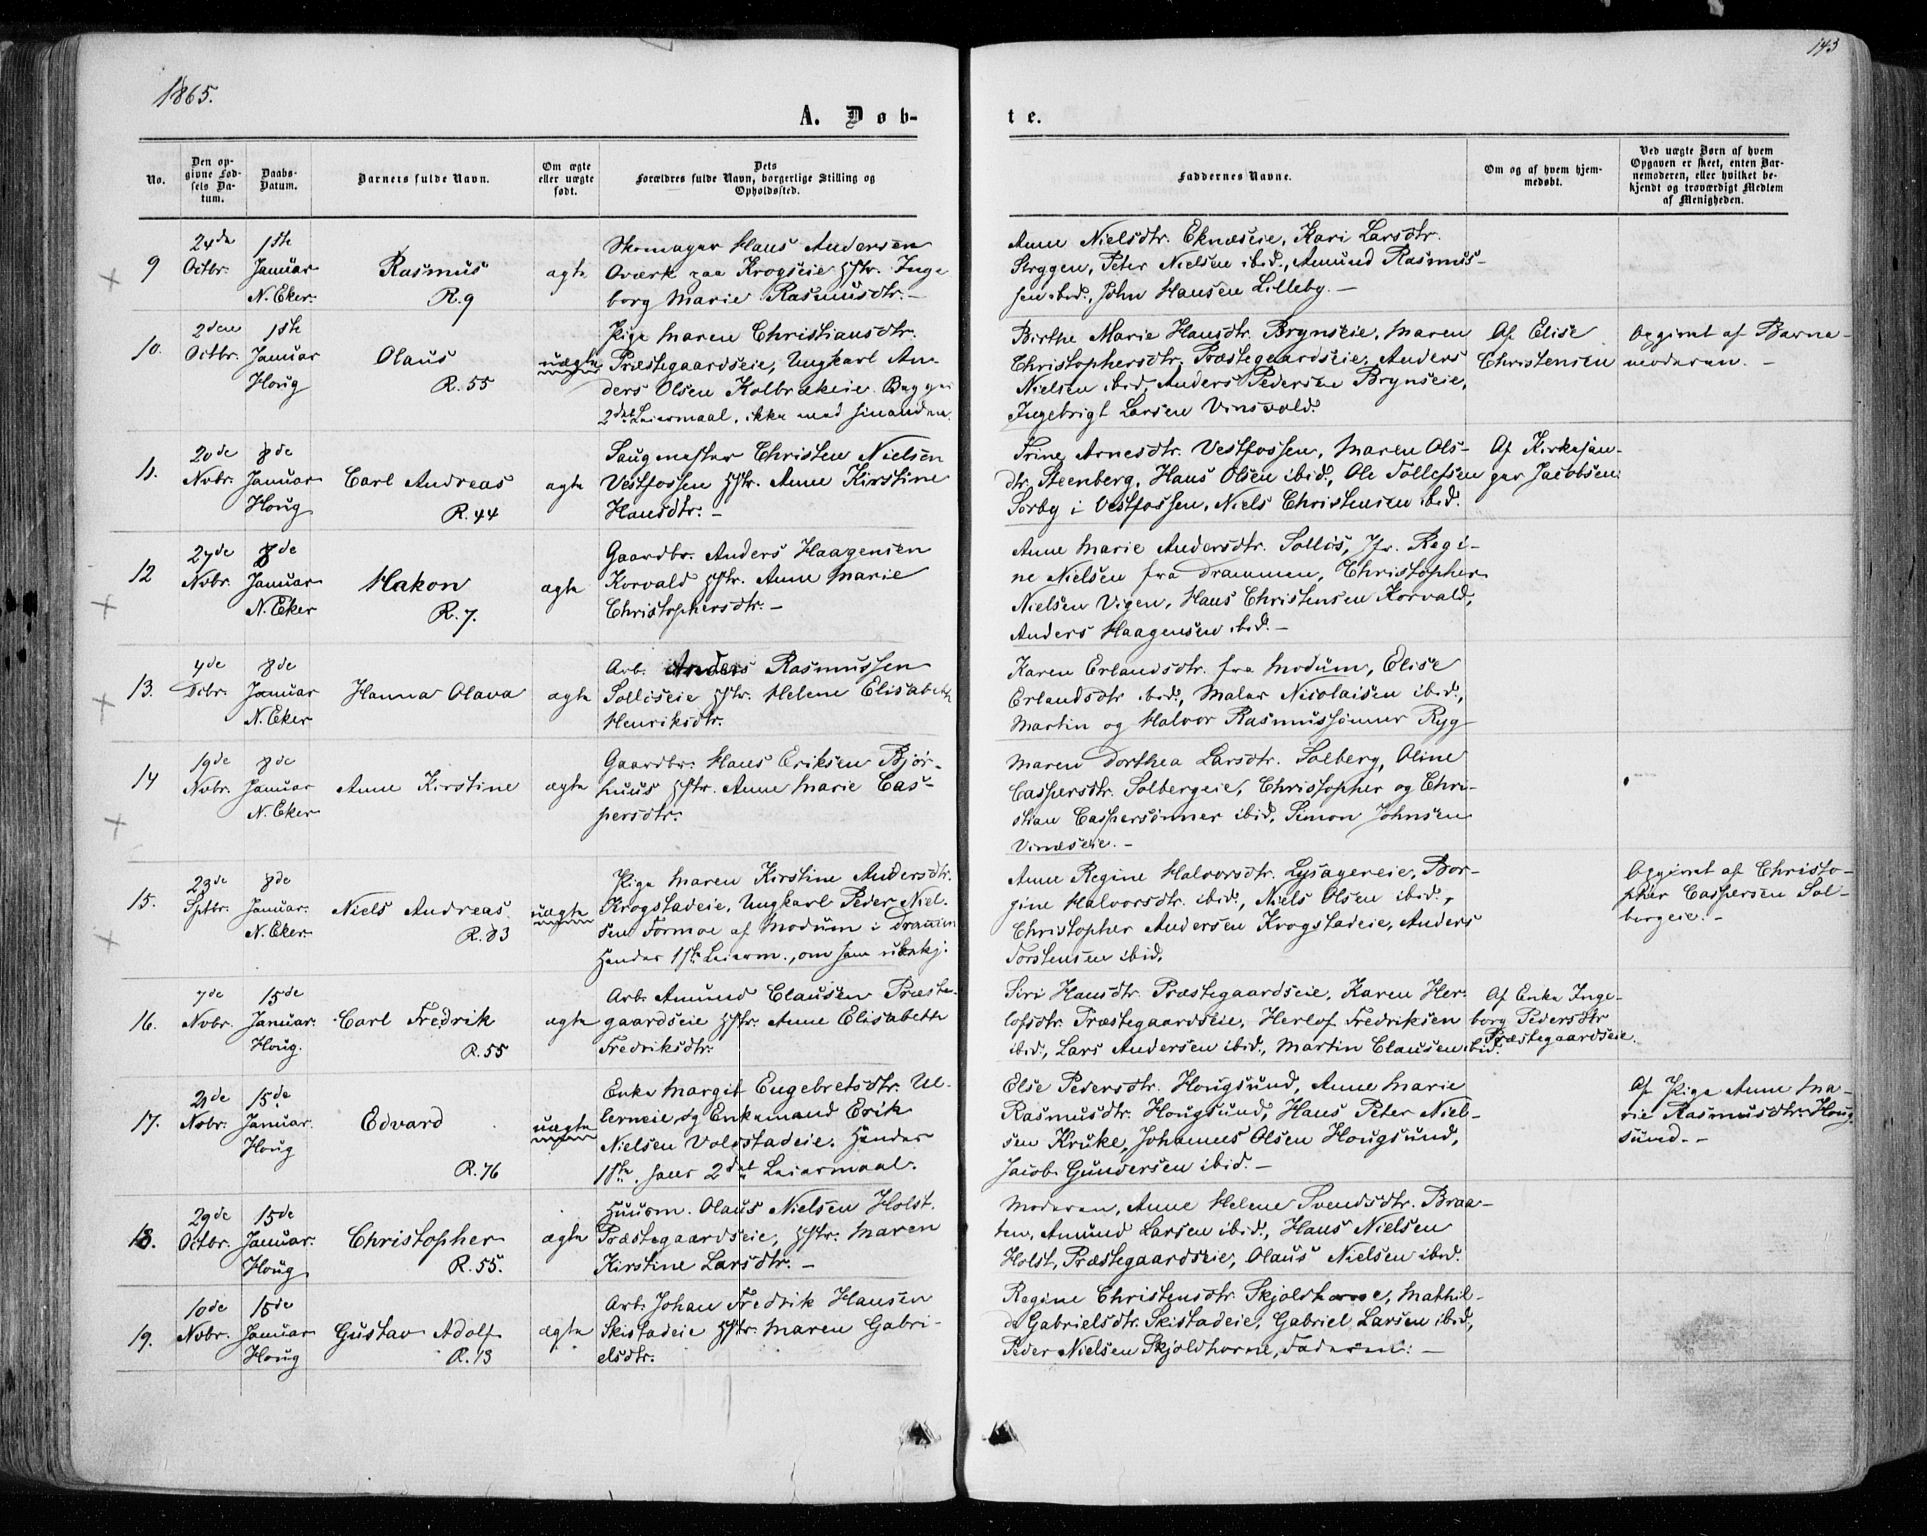 1865.
143
A. Døb-
te.
No.
Den op-
givne Fød-
sels Da-
tum.
Daabs-
Datum.
Barnets fulde Navn.
Om ægte
eller uægte
født.
Dets
Forældres fulde Navn, borgerlige Stilling og
Opholdssted.
Faddernes Navne.
Om og af hvem hjem-
medøbt.
Ved uægte Børn af hvem
Opgaven er skeet, enten Bar-
nemoderen, eller hvilket be-
kjendt og troværdigt Medlem
af Menigheden.
9
24de
Octbr.
1ste
Januar
N. Eker.
Rasmus
R. 9
ægte
Skomager Hans Andersen
Overk paa Krogseie Hstr. Inge
borg Marie Rasmusdtr. -
Anne Nielsdtr. Eknæseie, Kari Larsdtr.
Stryggen, Peter Nielsen ibid., Amund Rasmus-
sen ibid., John Hansen Lilleby. -
10.
2den
Octbr.
1ste
Januar
Houg
Olaus
R. 55
uægte
Pige Maren Christiansdtr.
Præstegaardseie, Ungkarl An-
ders Olsen Kolbrækeie. Begges
2det Leiermaal, ikke med hinanden.
Birthe Marie Hansdtr. Brynseie, Maren
Christophersdtr. Præstegaardseie, Anders
Nielsen ibid. Anders Pedersen Brynseie,
Ingebrigt Larsen Vinsvold.
Af Elise
Christensen
Opgivet af Barne-
moderen. -
11.
20de
Novbr.
8de
Januar
Houg
Carl Andreas
R. 44
ægte
Saugmester Christen Nielsen
Vestfossen Hstr. Anne Kirstine
Hansdtr. -
Trine Arnesdtr. Vestfossen, Maren Ols-
dtr. Steenberg, Hans Olsen ibid., Ole Tollefsen
Sørby i Vestfossen, Niels Christensen ibid.
Af Kirkesan-
ger Jacobsen.
12
27de
Novbr.
8de
Januar
N. Eker
Hakon
R. 7.
ægte
Gaardbr. Anders Haagensen
Korvald Hstr. Anne Marie
Christophersdtr. -
Anne Marie Andersdtr. Solløs, Jfr. Regi-
ne Nielsen fra Drammen, Christopher
Nielsen Vigen, Hans Christensen Korvald,
Anders Haagensen ibid. -
13.
4de
Dcbr.
8de
Januar
N. Eker
Hanna Olava
ægte
Arb. Anders Rasmussen
Solliseie Hstr. Helene Elisabeth
Henriksdtr.
Karen Erlandsdtr. fra Modum, Elise
Erlandsdtr ibid., Maler Nicolaisen ibid.,
Martin og Halvor Rasmussønner Ryg
14
19de
Novbr.
8de
Januar
N. Eker
Anne Kirstine
ægte
Gaardbr. Hans Eriksen Bjør-
huus Hstr. Anne Marie Cas-
persdtr.
Maren Dorthea Larsdtr. Solberg, Oline
Caspersdtr. Solbergeie, Christopher og Chri-
stian Caspersønner ibid, Simon Johnsen
Vinæseie. -
15.
23de
Sptbr.
8de
Januar.
N. Eker
Niels Andreas
R. 83
uægte
Pige Maren Kirstine Andersdtr.
Krogstadeie, Ungkarl Peder Niel-
sen Formoe af Modum i Drammen
Hendes 1ste Leierm., om ham ubekj.
Anne Regine Halvorsdtr. Lysagereie, Bor-
gine Halvorsdtr. ibid., Niels Olsen ibid.,
Christopher Andersen Krogstadeie, Anders
Torstensen ibid.
Opgivet af Christo-
pher Caspersen Sol-
bergeie. -
16.
7de
Novbr.
15de
Januar.
Houg.
Carl Fredrik
R. 55
ægte
Arb. Amund Clausen Præste-
gaardseie Hstr. Anne Elisabeth
Fredriksdtr.
Siri Hansdtr. Præstegaardseie, Karen Her-
lofsdtr. Præstegaardseie, Herlof Fredriksen
ibid., Lars Andersen ibid., Martin Clausen ibid.
Af Enke Inge-
borg Pedersdtr
Præstegaardseie.
17.
21de
Novbr.
15de
Januar.
Houg
Edvard
R. 76
uægte
Enke Margit Engebretsdtr. Ul-
lerneie, og Enkemand Erik
Nielsen Voldstadeie. Hendes
1ste, hans 2det Leiermaal.
Else Pedersdtr. Hougsund, Anne Marie
Rasmusdtr. Hougsund, Hans Peter Niel-
sen Kruke, Johannes Olsen Hougsund,
Jacob Gundersen ibid. -
Af Pige Anne Ma-
rie Rasmusdtr. Houg-
sund. -
18.
29de
Octbr.
15de
Januar.
Houg
Christopher
R. 55.
ægte
Huusm. Olaus Nielsen Holst.
Præstegaardseie, Hstr. Maren
Kirstine Larsdtr. -
Moderen, Anne Helene Svendsdtr. Braa-
ten, Amund Larsen ibid., Hans Nielsen
Holst, Præstegaardseie, Olaus Nielsen ibid.
19.
10de
Novbr.
15de
Januar
Houg
Gustav Adolf
R. 13
ægte
Arb. Johan Fredrik Hansen
Skistadeie Hstr. Maren Gabri-
elsdtr.
Regine Christensdtr. Skjoldhorne, Mathil-
de Gabrielsdtr. Skistadeie, Gabriel Larsen ibid,
Peder Nielsen Skjoldhorne, Faderen. -